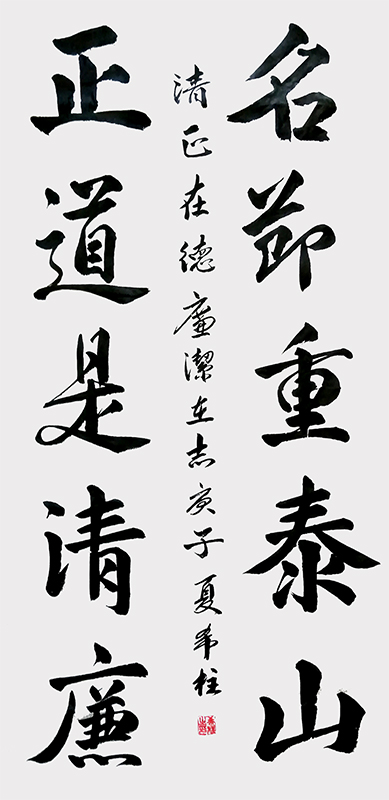 名節重泰山
清正在德廉潔在志庚子夏柱
正道是清廉